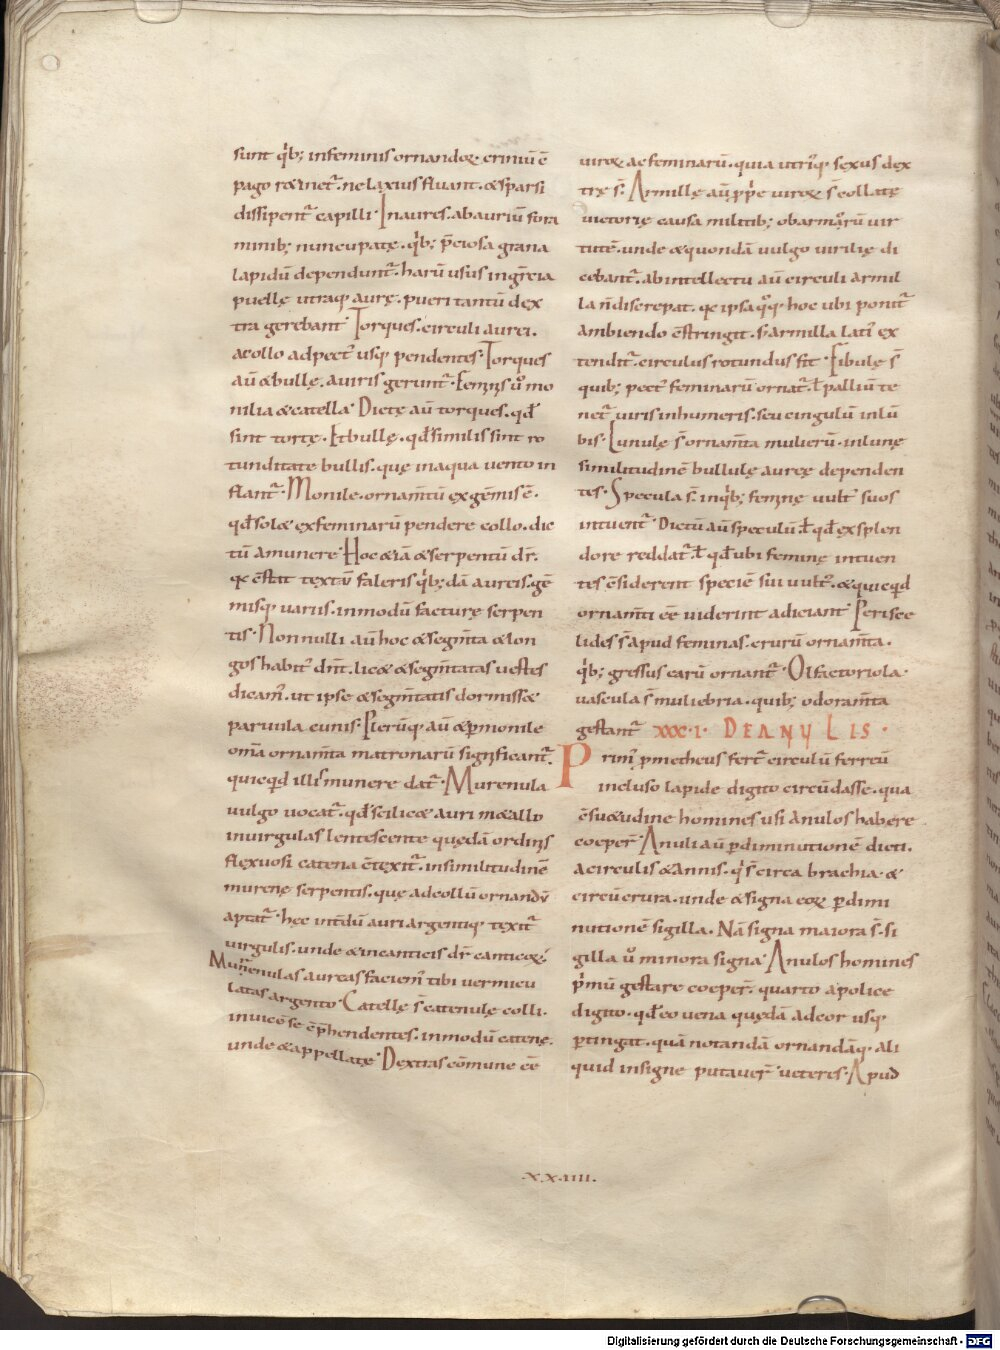 sunt qͥb; infeminis ornandoꝝ. criniũ ẽ
pago ꝛ&inet᷑. ne laxius fluant. & sparsi
dissipent᷑ capilli. Inaures. abauriũ fora
minib; nuncupatę. qͥb; p̃ciosa grana
lapidũ dependunt᷑. harũ usus ingr̃cia
puellę utraq; aurę. pueri tantũ dex
tra gerebant. Torques. circuli aurei.
acollo adpect᷑ usq; pendentes. Torques
aũ &bullę. auiris gerunt᷑. uͦ mo
nilia & catella. Dictę aũ torques. qđ
sint tortę. Et bullę. qđ similis sint ro
tunditate bullis. quę inaqua uento in
flant᷑. Monile. ornam̃tũ exgẽmis ẽ.
qđ sol& exfeminarũ pendere collo. dic
tũ amunere. Hoc &iã & serpentũ dr̃.
 c̃stat textũ faleris qͥb;dã aureis. gẽ
misq; uariis. inmodũ facturę serpen
tis. Nonnulli aũ hoc & segm̃ta & lon
gos habit᷑ dñt. lic& & segm̃tatas uestes
dicam᷑. ut ipse & segm̃tatis dormiss&
paruula cunis. Pleruq; aũ & ꝑmonile
om̃a ornam̃ta matronarũ significant᷑.
quicqd illiͬ munere dat᷑. Murenula
uulgo uocat᷑. qđ scilic& auri m&allo
inuirgulas lentescente quędã ordinis
flexuosi catena c̃texit᷑. insimilitudinẽ
murenę serpentis. quę adcollũ ornandũ
aptat᷑. hęc int̃dũ auri argentiq; texit᷑
uirgulis. unde & incanticis dr̃ canticoꝝ.
Murenulas aureas faciem᷑ tibi uermicu
latas argento. Catellę s̃ catenulę colli.
inuicẽ se c̃p̃hendentes. inmodũ catenę.
unde & appellatę. Dextras cõmune ẽẽ
uiroꝝ ac feminarũ. quia utriq; sexus dex
trę s̃. Armillę aũ ꝓpͥe uiroꝝ s̃ collatę
uictorię causa militib; obarmoꝝ uir
tutẽ. unde & quondã uulgo uirilię di
cebant᷑. abintellectu aũ circuli armil
la ñdiscrepat. ipsa qͦq; hoc ubi ponit᷑
ambiendo c̃stringit. armilla lati᷑ ex
tendit᷑. circulus rotundus fit. Fibulę s̃
quib; pect᷑ feminarũ ornat᷑. ł palliũ te
net᷑ uiris inhumeris. seu cingulũ inlũ
bis. Lunulę s̃ ornam̃ta mulierũ. inlunę
similitudinẽ bullulę aureę dependen
tes. Specula s̃. inqͥb; uult᷑ suos
intuent᷑. Dictũ aũ speculũ. ł qđ exsplen
dore reddat᷑. ł qđ ubi feminę intuen
tes c̃siderent speciẽ sui uult᷑. & quicqđ
ornam̃ti ẽẽ uiderint adiciant. Perisce
lides s̃ apud feminas. crurũ ornam̃ta.
qͥb; gressus earũ ornant᷑. Olfactoriola.
uascula s̃ muliebria. quib; odoram̃ta
gestant᷑. XXXI. DE ANULIS.
Prim᷑ ꝓmetheus fert᷑ circulũ ferreũ
incluso lapide digito circũdasse. qua
c̃su&udine homines usi anulos habere
coeper̃. Anuli aũ ꝑdiminutionẽ dicti.
acirculis & annis. qͥ s̃ circa brachia. &
circũcrura. unde & signa eoꝝ ꝑdimi
nutionẽ sigilla. Nã signa maiora s̃. si
gilla uͦ minora signa. Anulos homines
pͥmũ gestare coeper̃. quarto apolice
digito. qđ eo uena quędã adcor usq;
ꝑtingat. quã notandã ornandãq; ali
quid insigne putauer̃ ueteres. Apud
.XXIIII.
Digitalisierung gefördert durch die Deutsche Forschungsgemeinschaft - DFG